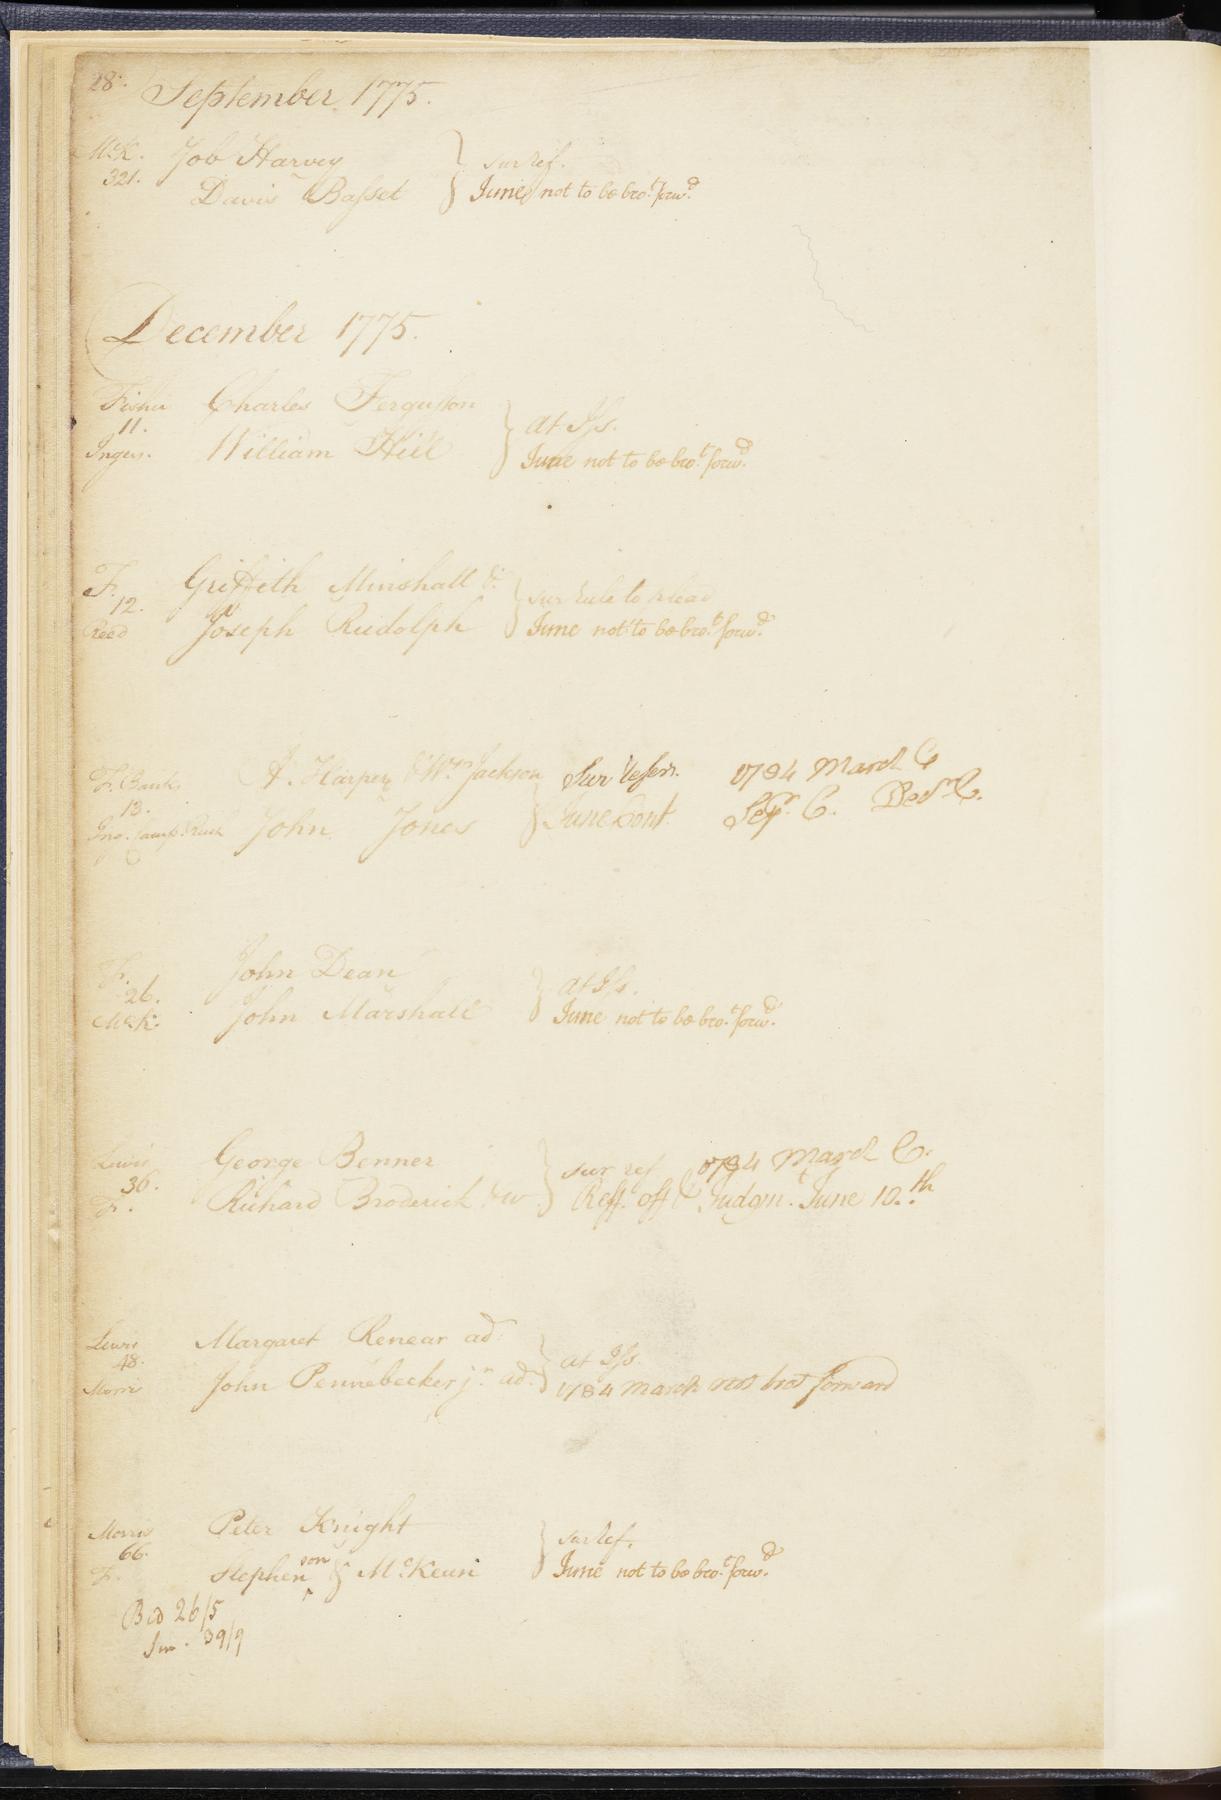 28. September 1775.
McK. Job Harvey } sur ref.
321. Davis Basset } June not to be bro.t forw.d
December 1775.
Fisher Charles Ferguson } at Iss.
11.
Ingers. William Hill } June not to be bro.t forw.d
F. Griffith Minshall & } sur rule to plead
12.
Reed Joseph Rudolph } June not to be bro.t forw.d
F. Banks A. Harper & Wm. Jackson } Sur refer. 1784 March C
13.
Jno. Camp. Rush John Jones } June Cont. Sepr. C. Decr. C.
F. John Dean } at Iss.
26.
McK. John Marshall } June not to be bro.t forw.d
Lewis George Benner } sur ref 1784 March C.
36.
F. Richard Broderick & w } Reff. off Judgm.t June 10.th
Lewis Margaret Renear ad } at Iss.
48.
Morris John Pennebecker jr. ad. } 1784 March not brot forward
Morris Peter Knight } sur ref.
66.
F. Stephenson & McKean } June not to be bro.t forw.d
26/5
39/9